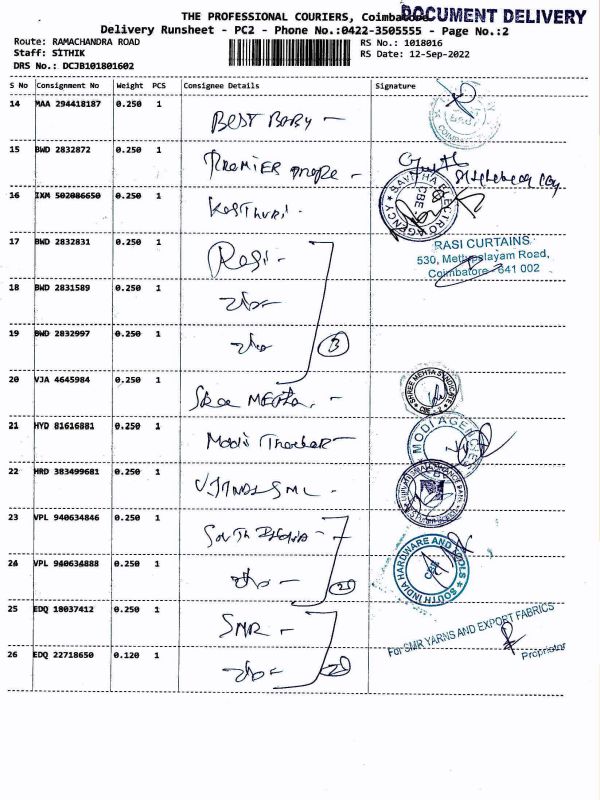 THE PROFESSIONAL COURIERS, Coimbatore
DOCUMENT DELIVERY
Delivery Runsheet - PC2 - Phone No.:0422-3505555 - Page No.:2
Route: RAMACHANDRA ROAD
RS No.: 1018016
Staff: SITHIK
RS Date: 12-Sep-2022
DRS No.: DCJB101801602
S No Consignment No Weight PCS Consignee Details Signature
14 MAA 294418187 0.250 1 BEST BABY -
COIMBATORE
15 BWD 2832872 0.250 1 PREMIER -
16 IXM 502086650 0.250 1 Kasthuri -
SAVITHA ELECTRO AGENCY CBE
17 BWD 2832831 0.250 1 Rasi -
RASI CURTAINS
530, Mettupalayam Road,
Coimbatore - 641 002
18 BWD 2831589 0.250 1
19 BWD 2832997 0.250 1 3
20 VJA 4645984 0.250 1 Sree MEHTA -
SHREE MEHTA SYNDICATE CBE - 2
21 HYD 81616881 0.250 1 Modi Tharkar -
MODI AGENCIES
22 HRD 383499681 0.250 1 UJJIVAN SML -
23 VPL 940634846 0.250 1 South India -
24 VPL 940634888 0.250 1
SOUTH INDIA HARDWARE AND TOOLS CBE
25 EDQ 18037412 0.250 1 SMR -
For SMR YARNS AND EXPORT FABRICS
Proprietor
26 EDQ 22718650 0.120 1